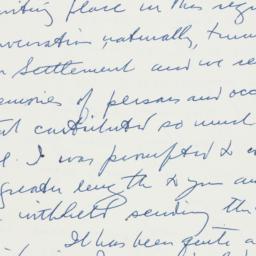 place in this
naturally,
Settlement and we
memories of persons and
contributed so much
I was prompted to
greater length to you
withheld sending
It has been quite a